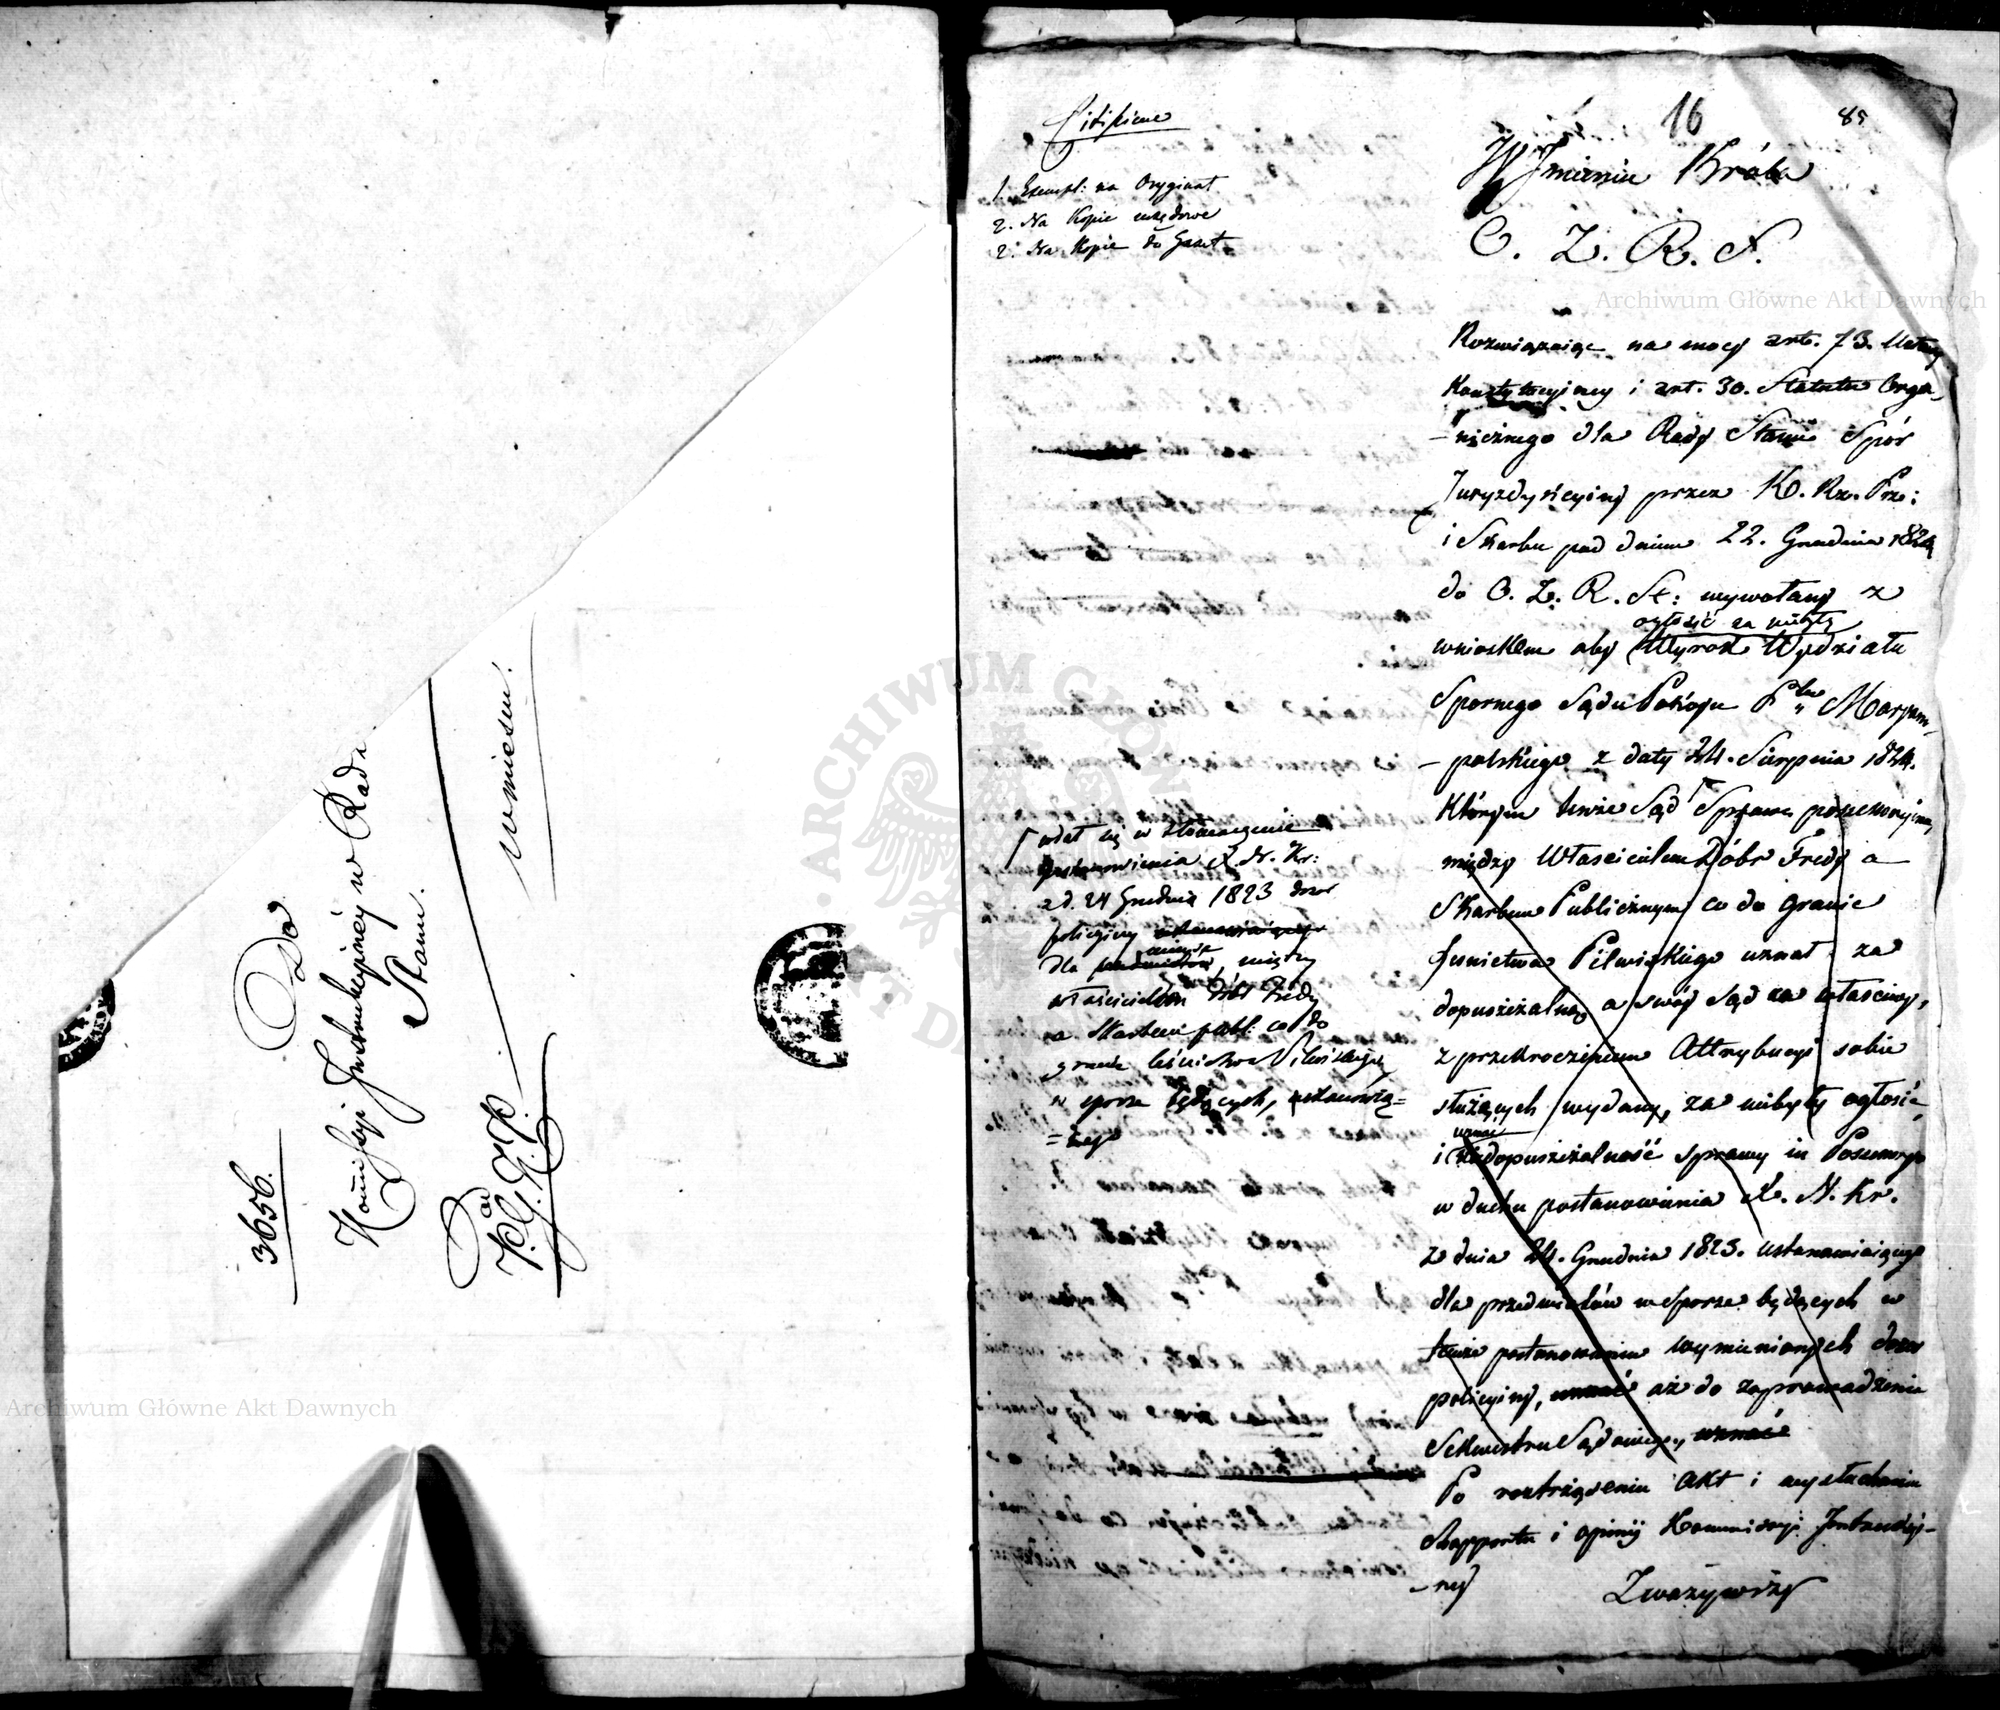 3656.
Do
Kommissyi Instrukcyjnéy w Radzie
Stanu.
Od
P. G. K. P.
wniesien.
16
85
1. Exempl: na Oryginał
2. Na Kopie urzędowe
2. Na Kopie do Gazet.
W Imieniu Króla
O. Z. R. S.
Rozwiązuiąc na mocy art. 73. Ustawy
Konstytucyjney i art. 30. Statutu Orga-
-nicznego dla Rady Stanu Spór
Juryzdykcyiny przez K. Rz. Prz:
i Skarbu pod dniem 22. Grudnia 1824
do O. Z. R. St: wywołany z
ogłosić za niebyły
wnioskiem aby Wyrok Wydziału
Spornego Sądu Pokoju Ptu Maryam-
-polskiego z daty 24. Sierpnia 1824.
którym tenże Sąd Sprawę possessoryiną
między Właścicielem Dóbr Fredy a
Skarbem Publicznym co do granic
Leśnictwa Pilwiskiego uznał za
dopuszczalną a swóy Sąd za właściwy,
z przekroczeniem Attrybucyi sobie
służących wydany, za niebyły ogłosić,
uznać
i niedopuszczalność sprawy in Possessorio
w duchu postanowienia X. N. Kr.
z dnia 24. Grudnia 1823. ustanawiaiącego
dla przedmiotów w sporze będących w
temże postanowieniu wymienionych dozor
policyiny, uznać aż do zaprowadzenia
Sekwestru Sądowego, uznać
Po roztrząśnieniu Akt i wysłuchaniu
Rapportu i opinij Kommissyi Instrukcyi-
-ney
Zważywszy
wdał się w tłomaczenie
postanowienia X. N. Kr:
z d. 24 Grudnia 1823 dozor
policyiny ustanawiaiącego
dla przedmiotów, między
właścicielem Dóbr Fredy
a Skarbem publ: co do
granic leśnictwa Pilwiskiego
w sporze będących, ustanowią=
=cego
Archiwum Główne Akt Dawnych
Archiwum Główne Akt Dawnych